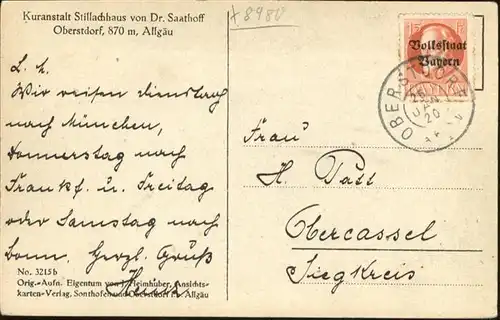 Kuranstalt Stillachhaus von Dr. Saathoff
Oberstdorf, 870 m, Allgäu
x8980
L. H.
Wir reisen Dienstag
nach München,
Donnerstag nach
Frankf. u. Freitag
oder Samstag nach
Bonn. Herzl. Gruß
Heinr.
No. 3215b
Orig.-Aufn. Eigentum von J. Heimhuber, Ansichts-
karten-Verlag, Sonthofen und Oberstdorf i. Allgäu
15
Volksstaat
Bayern
OBERSTDORF
26
JAN
20
Frau
H.
Obercassel
Siegkreis